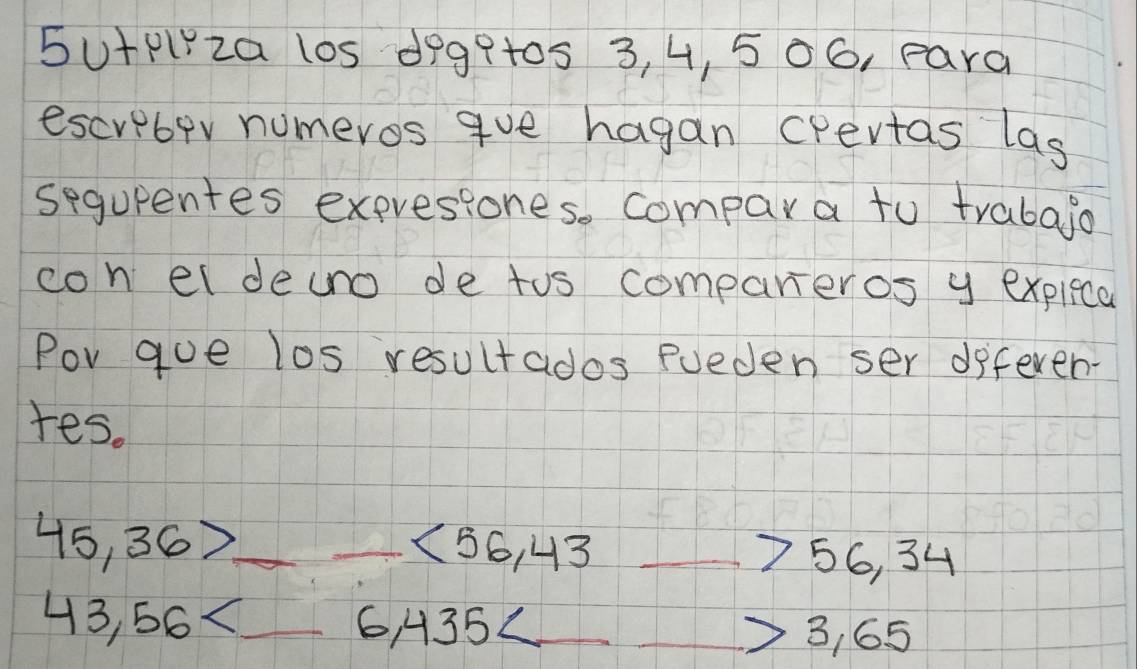 5 Utiliza los digitos 3, 4, 5 o 6, para
escribir numeros que hagan ciertas las
siguientes expresiones. compara tu trabajo
con el de uno de tus compañeros y explica
Por que los resultados Pueden ser diferen-
tes.
45,36 > __ __ < 56,43 __ > 56,34
43,56 < __ 6,435 < __ __ > 3,65